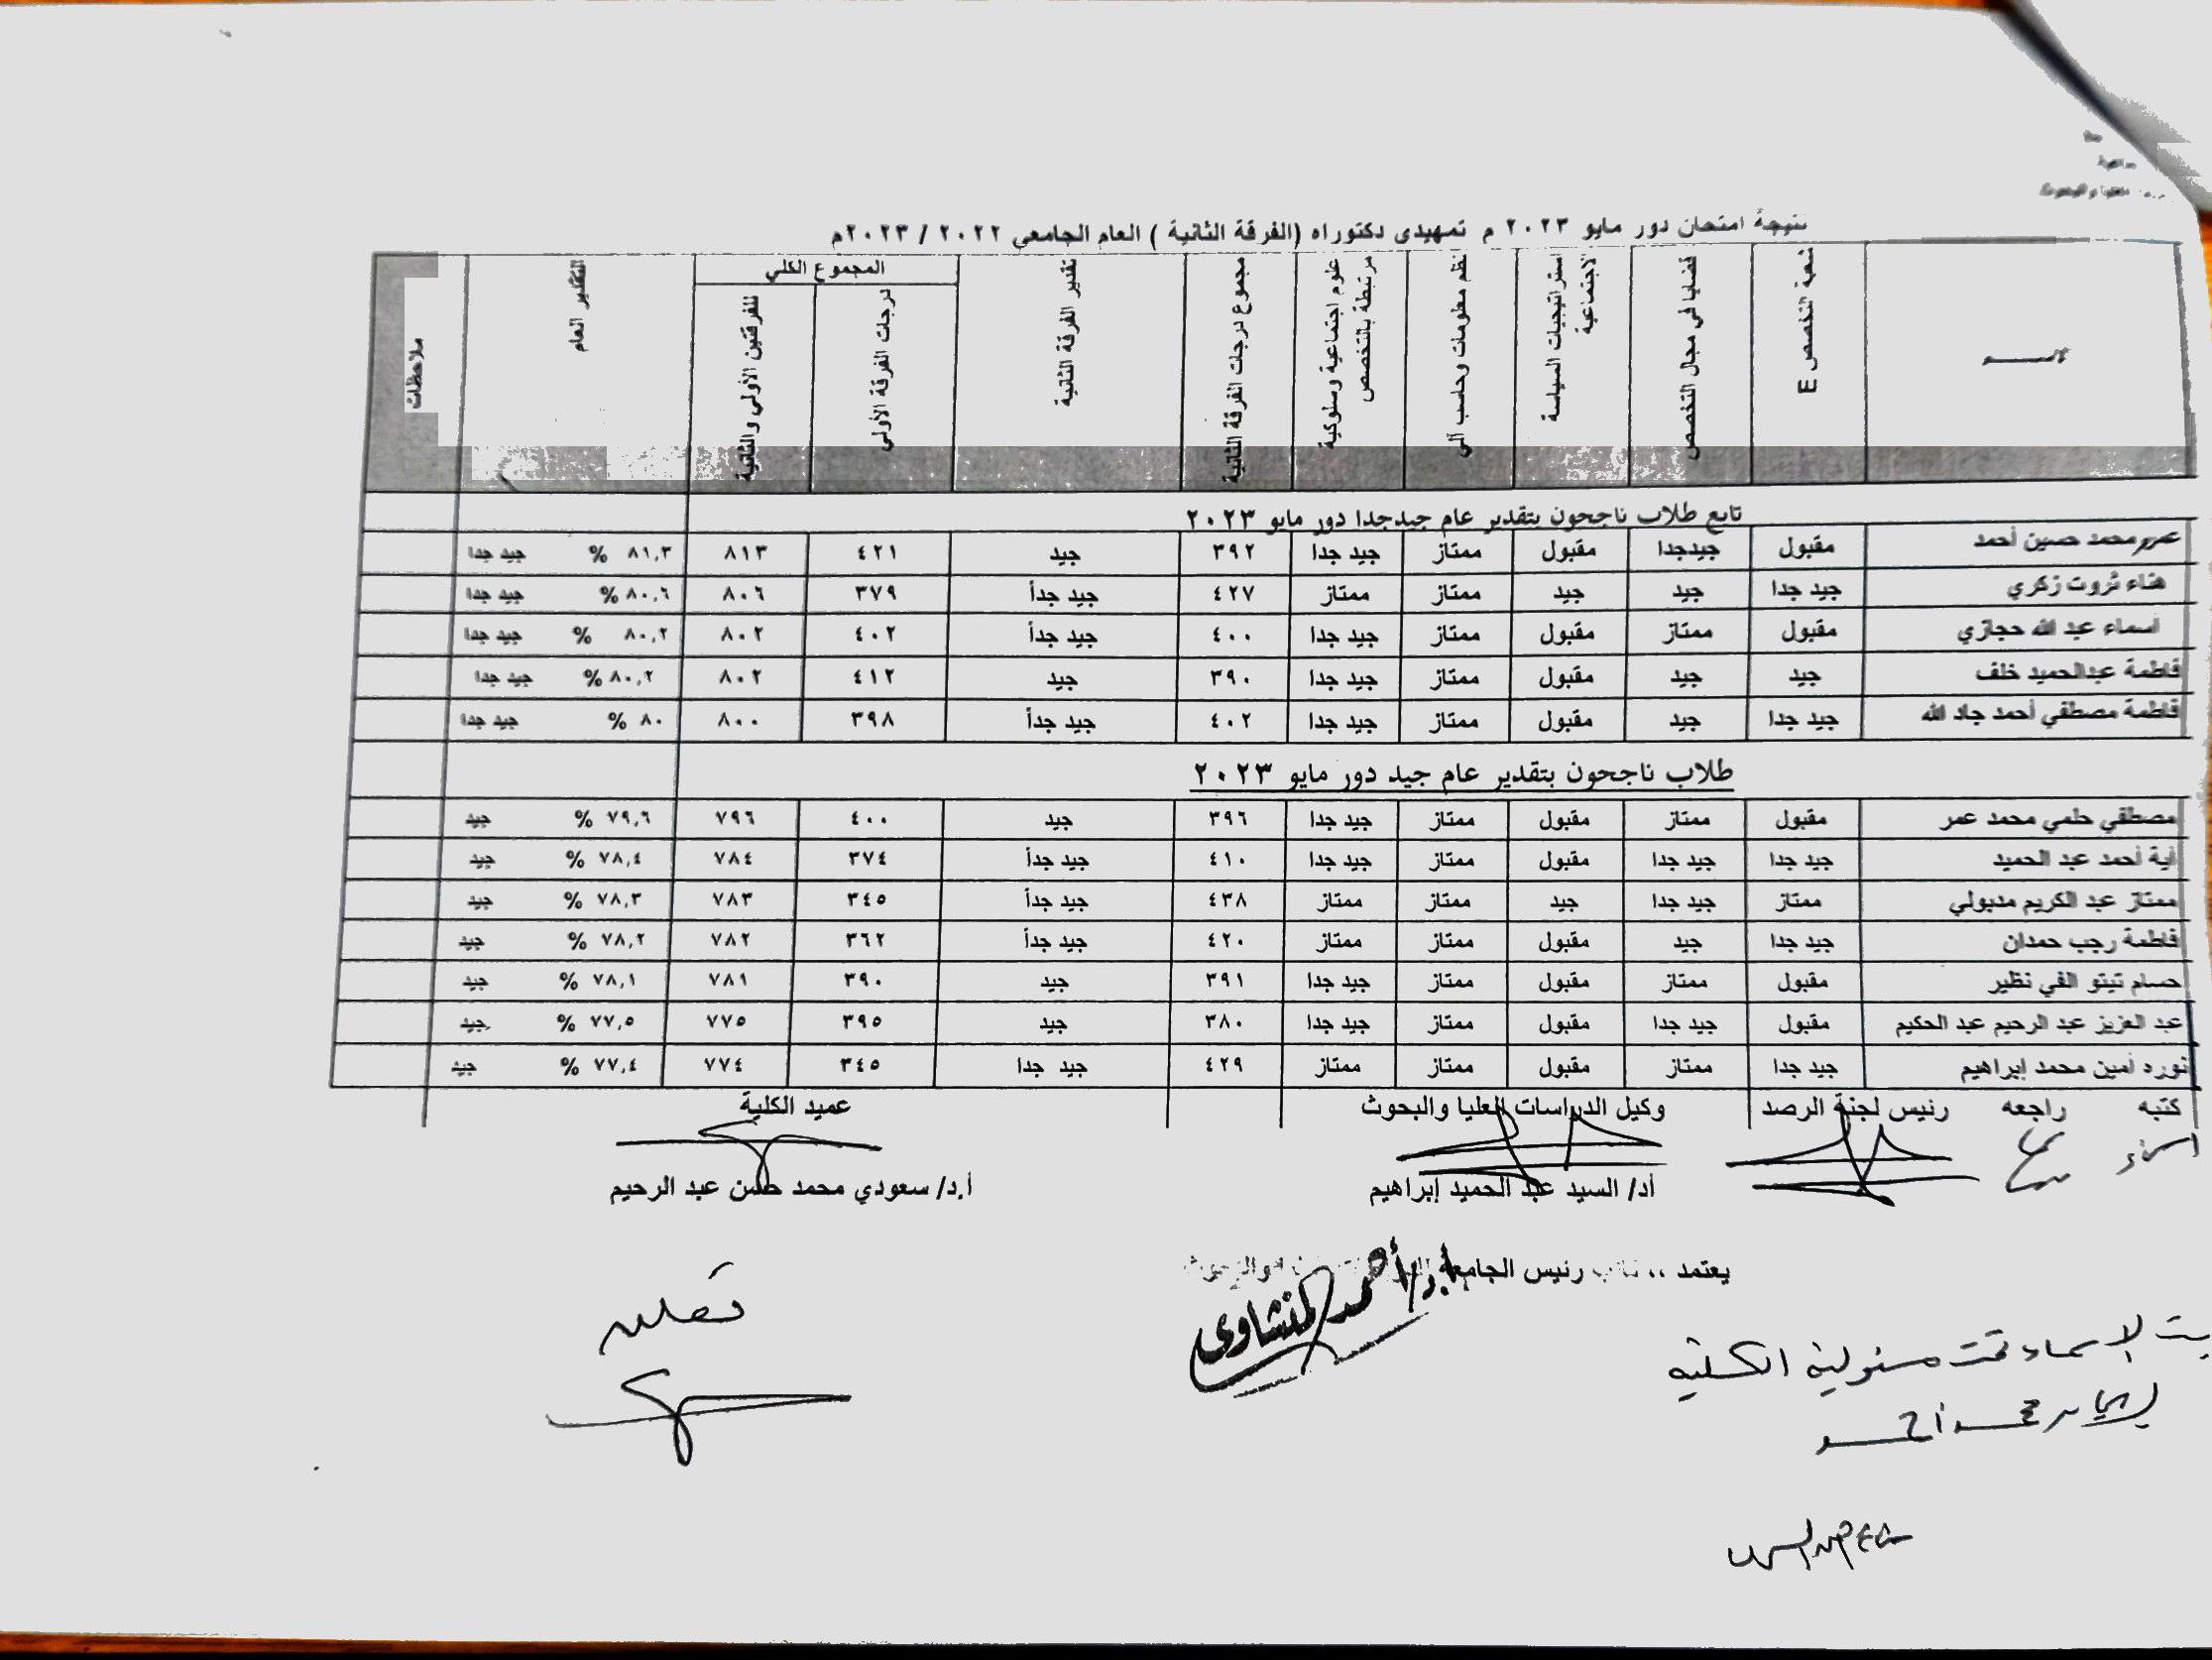 نتيجة امتحان دور مايو ٢٠٢٣ م تمهيدى دكتوراه (الفرقة الثانية ) العام الجامعي ٢٠٢٢ / ٢٠٢٣م
شعبة التخصص E | قضايا في مجال التخصص | استراتيجيات السياسة الاجتماعية | نظم معلومات وحاسب آلي | علوم اجتماعية وسلوكية مرتبطة بالتخصص | مجموع درجات الفرقة الثانية | تقدير الفرقة الثانية | المجموع الكلي | درجات الفرقة الأولي | للفرقتين الأولي والثانية | التقدير العام | ملاحظات
تابع طلاب ناجحون بتقدير عام جيدجدا دور مايو ٢٠٢٣
عمرو محمد حسين أحمد | مقبول | جيدجدا | مقبول | ممتاز | جيد جدا | ٣٩٢ | جيد | ٤٢١ | ٨١٣ | ٨١,٣ % | جيد جدا
هناء ثروت زكري | جيد جدا | جيد | جيد | ممتاز | ممتاز | ٤٢٧ | جيد جدأ | ٣٧٩ | ٨٠٦ | ٨٠,٦ % | جيد جدا
أسماء عبد الله حجازي | مقبول | ممتاز | مقبول | ممتاز | جيد جدا | ٤٠٠ | جيد جدأ | ٤٠٢ | ٨٠٢ | ٨٠,٢ % | جيد جدا
فاطمة عبدالحميد خلف | جيد | جيد | مقبول | ممتاز | جيد جدا | ٣٩٠ | جيد | ٤١٢ | ٨٠٢ | ٨٠,٢ % | جيد جدا
فاطمة مصطفي أحمد جاد الله | جيد جدا | جيد | مقبول | ممتاز | جيد جدا | ٤٠٢ | جيد جدأ | ٣٩٨ | ٨٠٠ | ٨٠ % | جيد جدا
طلاب ناجحون بتقدير عام جيد دور مايو ٢٠٢٣
مصطفي حلمي محمد عمر | مقبول | ممتاز | مقبول | ممتاز | جيد جدا | ٣٩٦ | جيد | ٤٠٠ | ٧٩٦ | ٧٩,٦ % | جيد
آية أحمد عبد الحميد | جيد جدا | جيد جدا | مقبول | ممتاز | جيد جدا | ٤١٠ | جيد جدأ | ٣٧٤ | ٧٨٤ | ٧٨,٤ % | جيد
ممتاز عبد الكريم مدبولي | ممتاز | جيد جدا | جيد | ممتاز | ممتاز | ٤٣٨ | جيد جدأ | ٣٤٥ | ٧٨٣ | ٧٨,٣ % | جيد
فاطمة رجب حمدان | جيد جدا | جيد | مقبول | ممتاز | ممتاز | ٤٢٠ | جيد جدأ | ٣٦٢ | ٧٨٢ | ٧٨,٢ % | جيد
حسام تيتو الفي نظير | مقبول | ممتاز | مقبول | ممتاز | جيد جدا | ٣٩١ | جيد | ٣٩٠ | ٧٨١ | ٧٨,١ % | جيد
عبد العزيز عبد الرحيم عبد الحكيم | مقبول | جيد جدا | مقبول | ممتاز | جيد جدا | ٣٨٠ | جيد | ٣٩٥ | ٧٧٥ | ٧٧,٥ % | جيد
نوره أمين محمد إبراهيم | جيد جدا | ممتاز | مقبول | ممتاز | ممتاز | ٤٢٩ | جيد جدا | ٣٤٥ | ٧٧٤ | ٧٧,٤ % | جيد
كتبه راجعه رئيس لجنة الرصد وكيل الدراسات العليا والبحوث عميد الكلية
أسماء
أد/ السيد عبد الحميد إبراهيم أ.د/ سعودي محمد حسن عبد الرحيم
يعتمد ،، نائب رئيس الجامعة
أ.د/أحمد المنشاوى
الاسماء تحت مسئولية الكلية